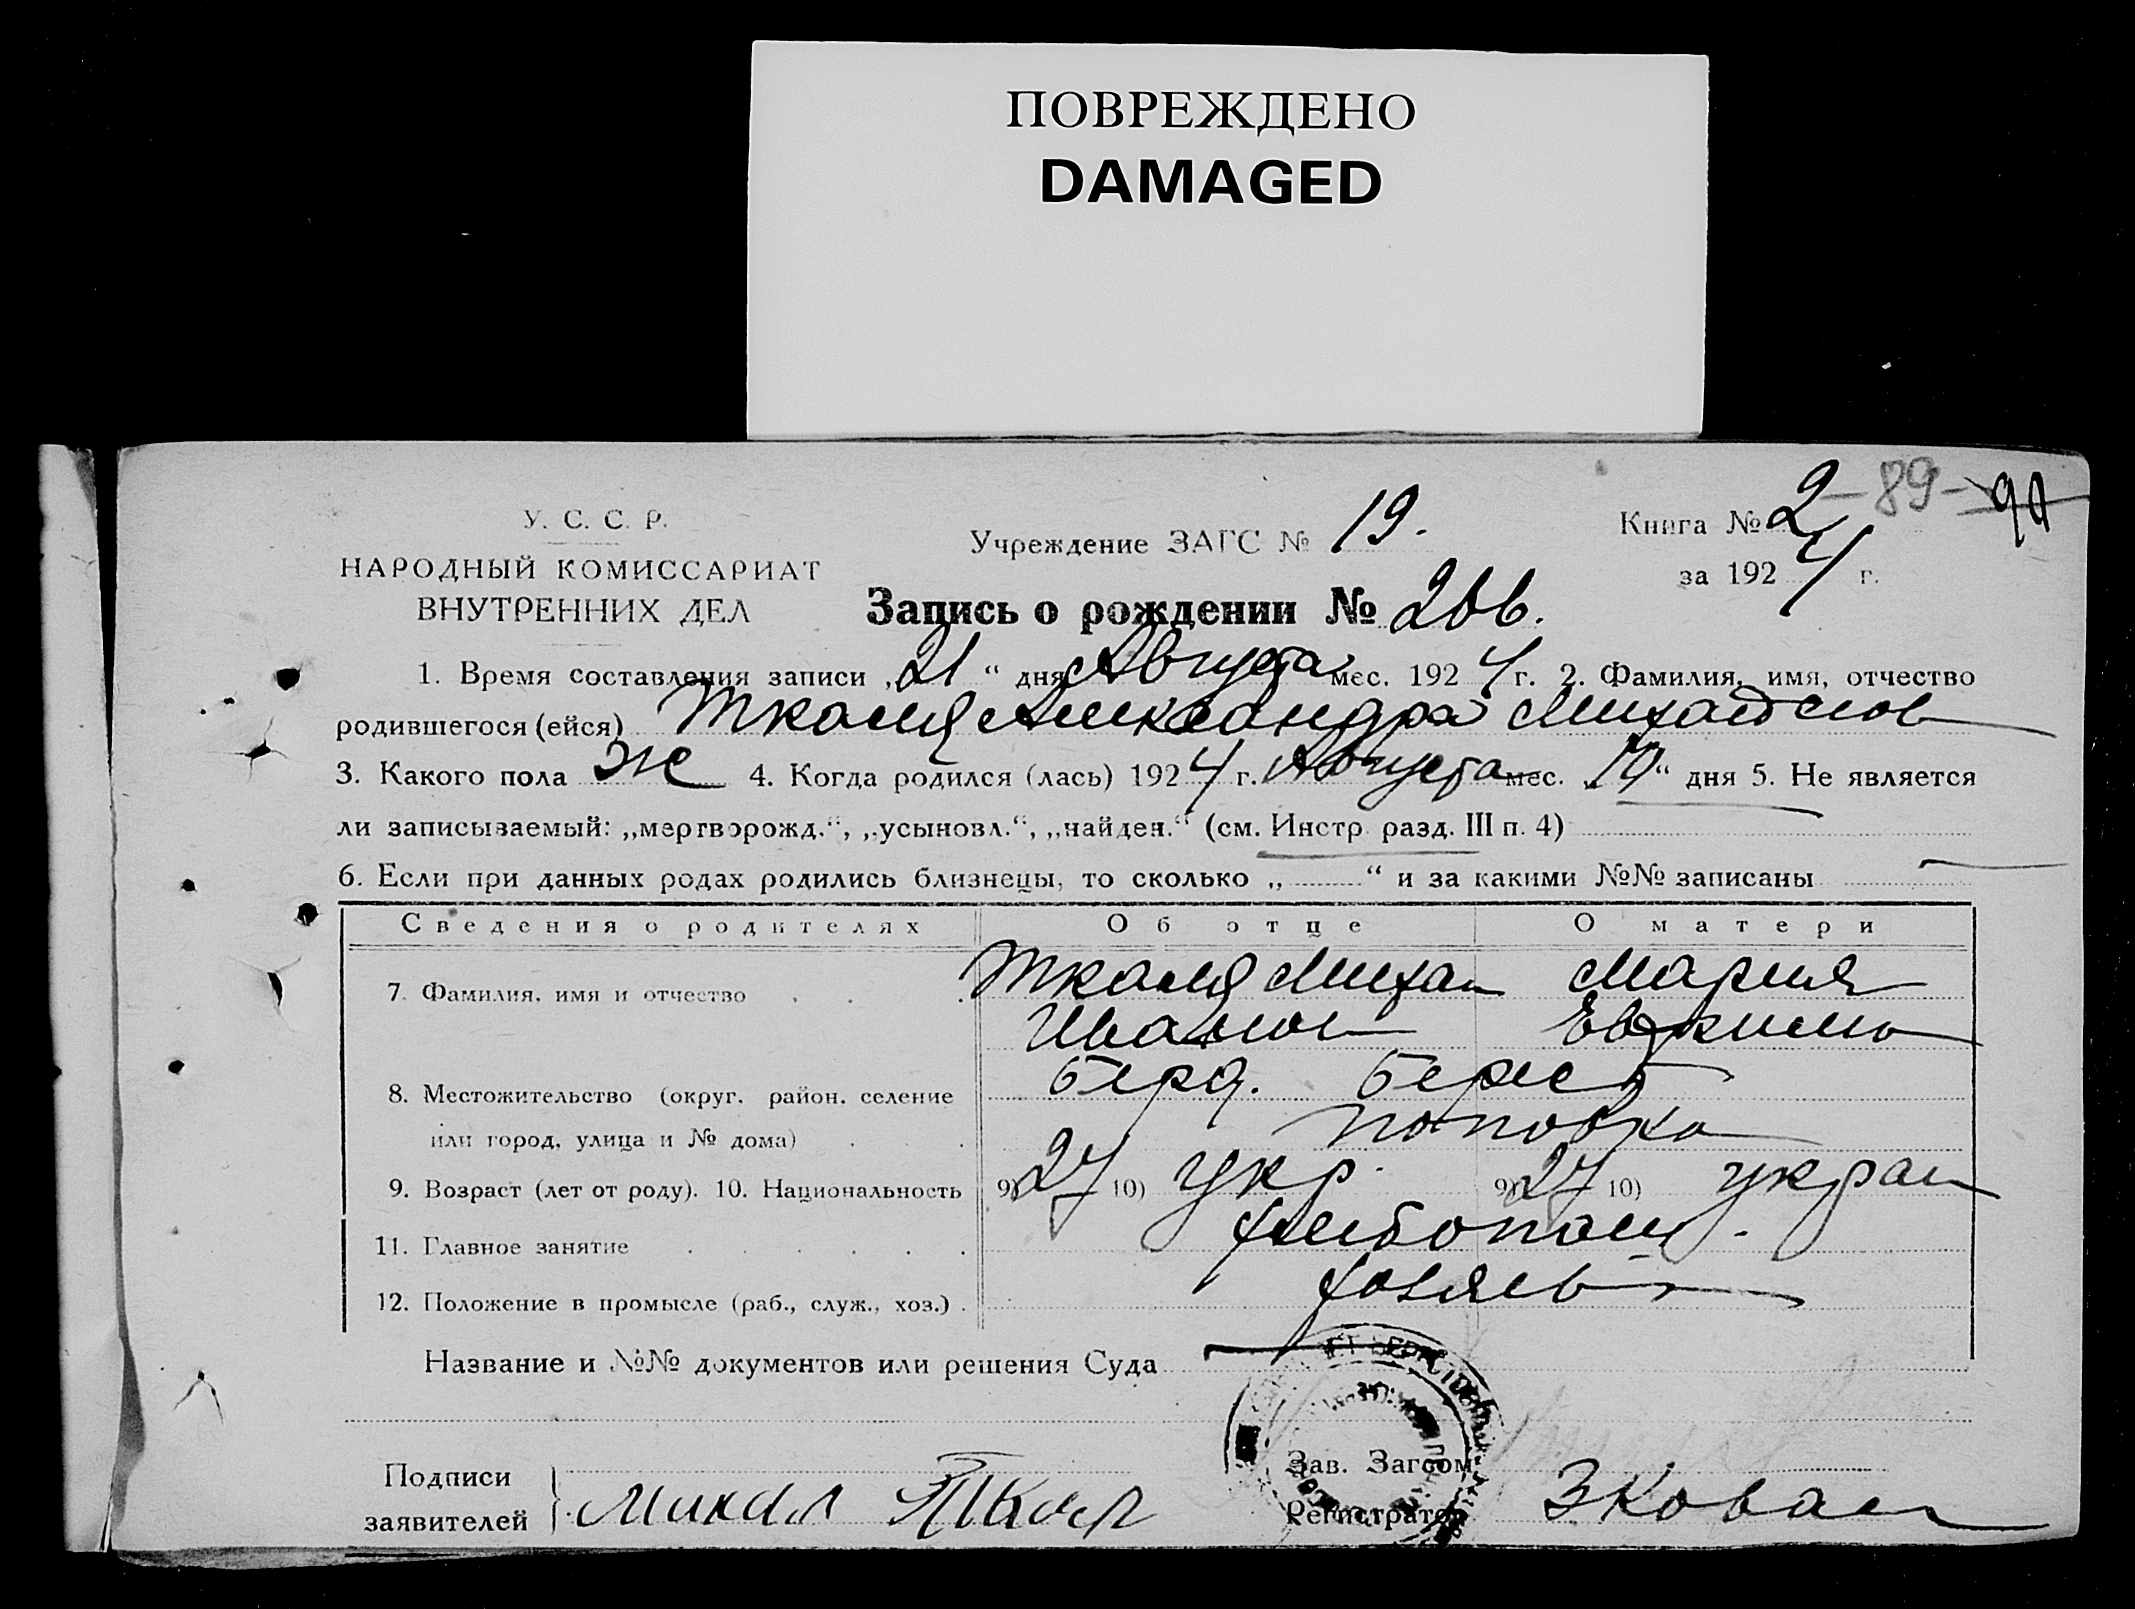 ПОВРЕЖДЕНО
DAMAGED
2 - 89 -
У. С. С. Р.
Учреждение ЗАГС № 19.
Книга № 2
НАРОДНЫЙ КОМИССАРИАТ
за 1924 г.
ВНУТРЕННИХ ДЕЛ
Запись о рождении №
1. Время составления записи „21“ дня Августа мес. 1924 г. 2. Фамилия, имя, отчество
родившегося (ейся) Александра Михайлов
3. Какого пола Ж 4. Когда родился (лась) 1924 г. Августа мес. „19“ дня 5. Не является
ли записываемый: „мертворожд.“, „усыновл.“, „найден.“ (см. Инстр. разд. III п. 4)
6. Если при данных родах родились близнецы, то сколько „ “ и за какими №№ записаны
Сведения о родителях Об отце О матери
7. Фамилия, имя и отчество Михаи Мария
Иванов
8. Местожительство (округ, район, селение Берд. Берест
или город, улица и № дома) Поповка
9. Возраст (лет от роду). 10. Национальность 9) 27 10) укр. 9) 27 10) украи
11. Главное занятие хлебопаш.
12. Положение в промысле (раб., служ., хоз.) хозяев
Название и №№ документов или решения Суда
Подписи
заявителей
Зав. Загсом
Регистратор